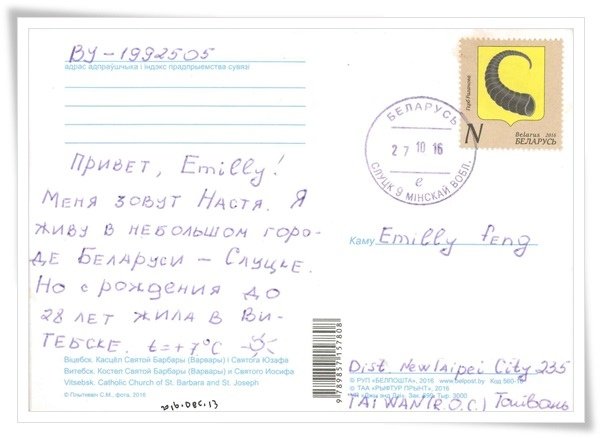 BY-1992505
адрас адпраўшчыка і індэкс прадпрыемства сувязі
Привет, Emilly!
Меня зовут Настя. Я
живу в небольшом горо-
де Беларуси – Слуцке.
Но с рождения до
28 лет жила в Ви-
тебске. t=+7°C
Віцебск. Касцёл Святой Барбары (Варвары) і Святога Юзафа
Витебск. Костел Святой Барбары (Варвары) и Святого Иосифа
Vitsebsk. Catholic Church of St. Barbara and St. Joseph
© Плыткевич С.М., фота, 2016
2016.DEC.13
9789857157808
БЕЛАРУСЬ
27 10 16
е
СЛУЦК 9 МІНСКАЙ ВОБЛ.
Герб Рагачова
N
Belarus 2016
БЕЛАРУСЬ
Каму Emilly feng
Dist. NewTaipei City 235
© РУП «БЕЛПОШТА», 2016 www.belpost.by Код 560-16
© ТАА «РЫФТУР ПРЫНТ», 2016
TAIWAN(R.O.C.) Тайвань
Зак. 695. Тираж 3000